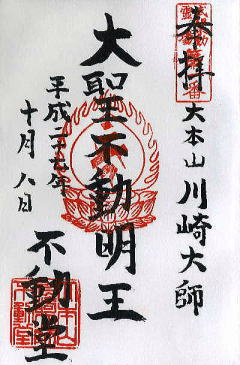 奉拝
大本山川崎大師
大聖不動明王
平成二十九年
十月八日
不動堂